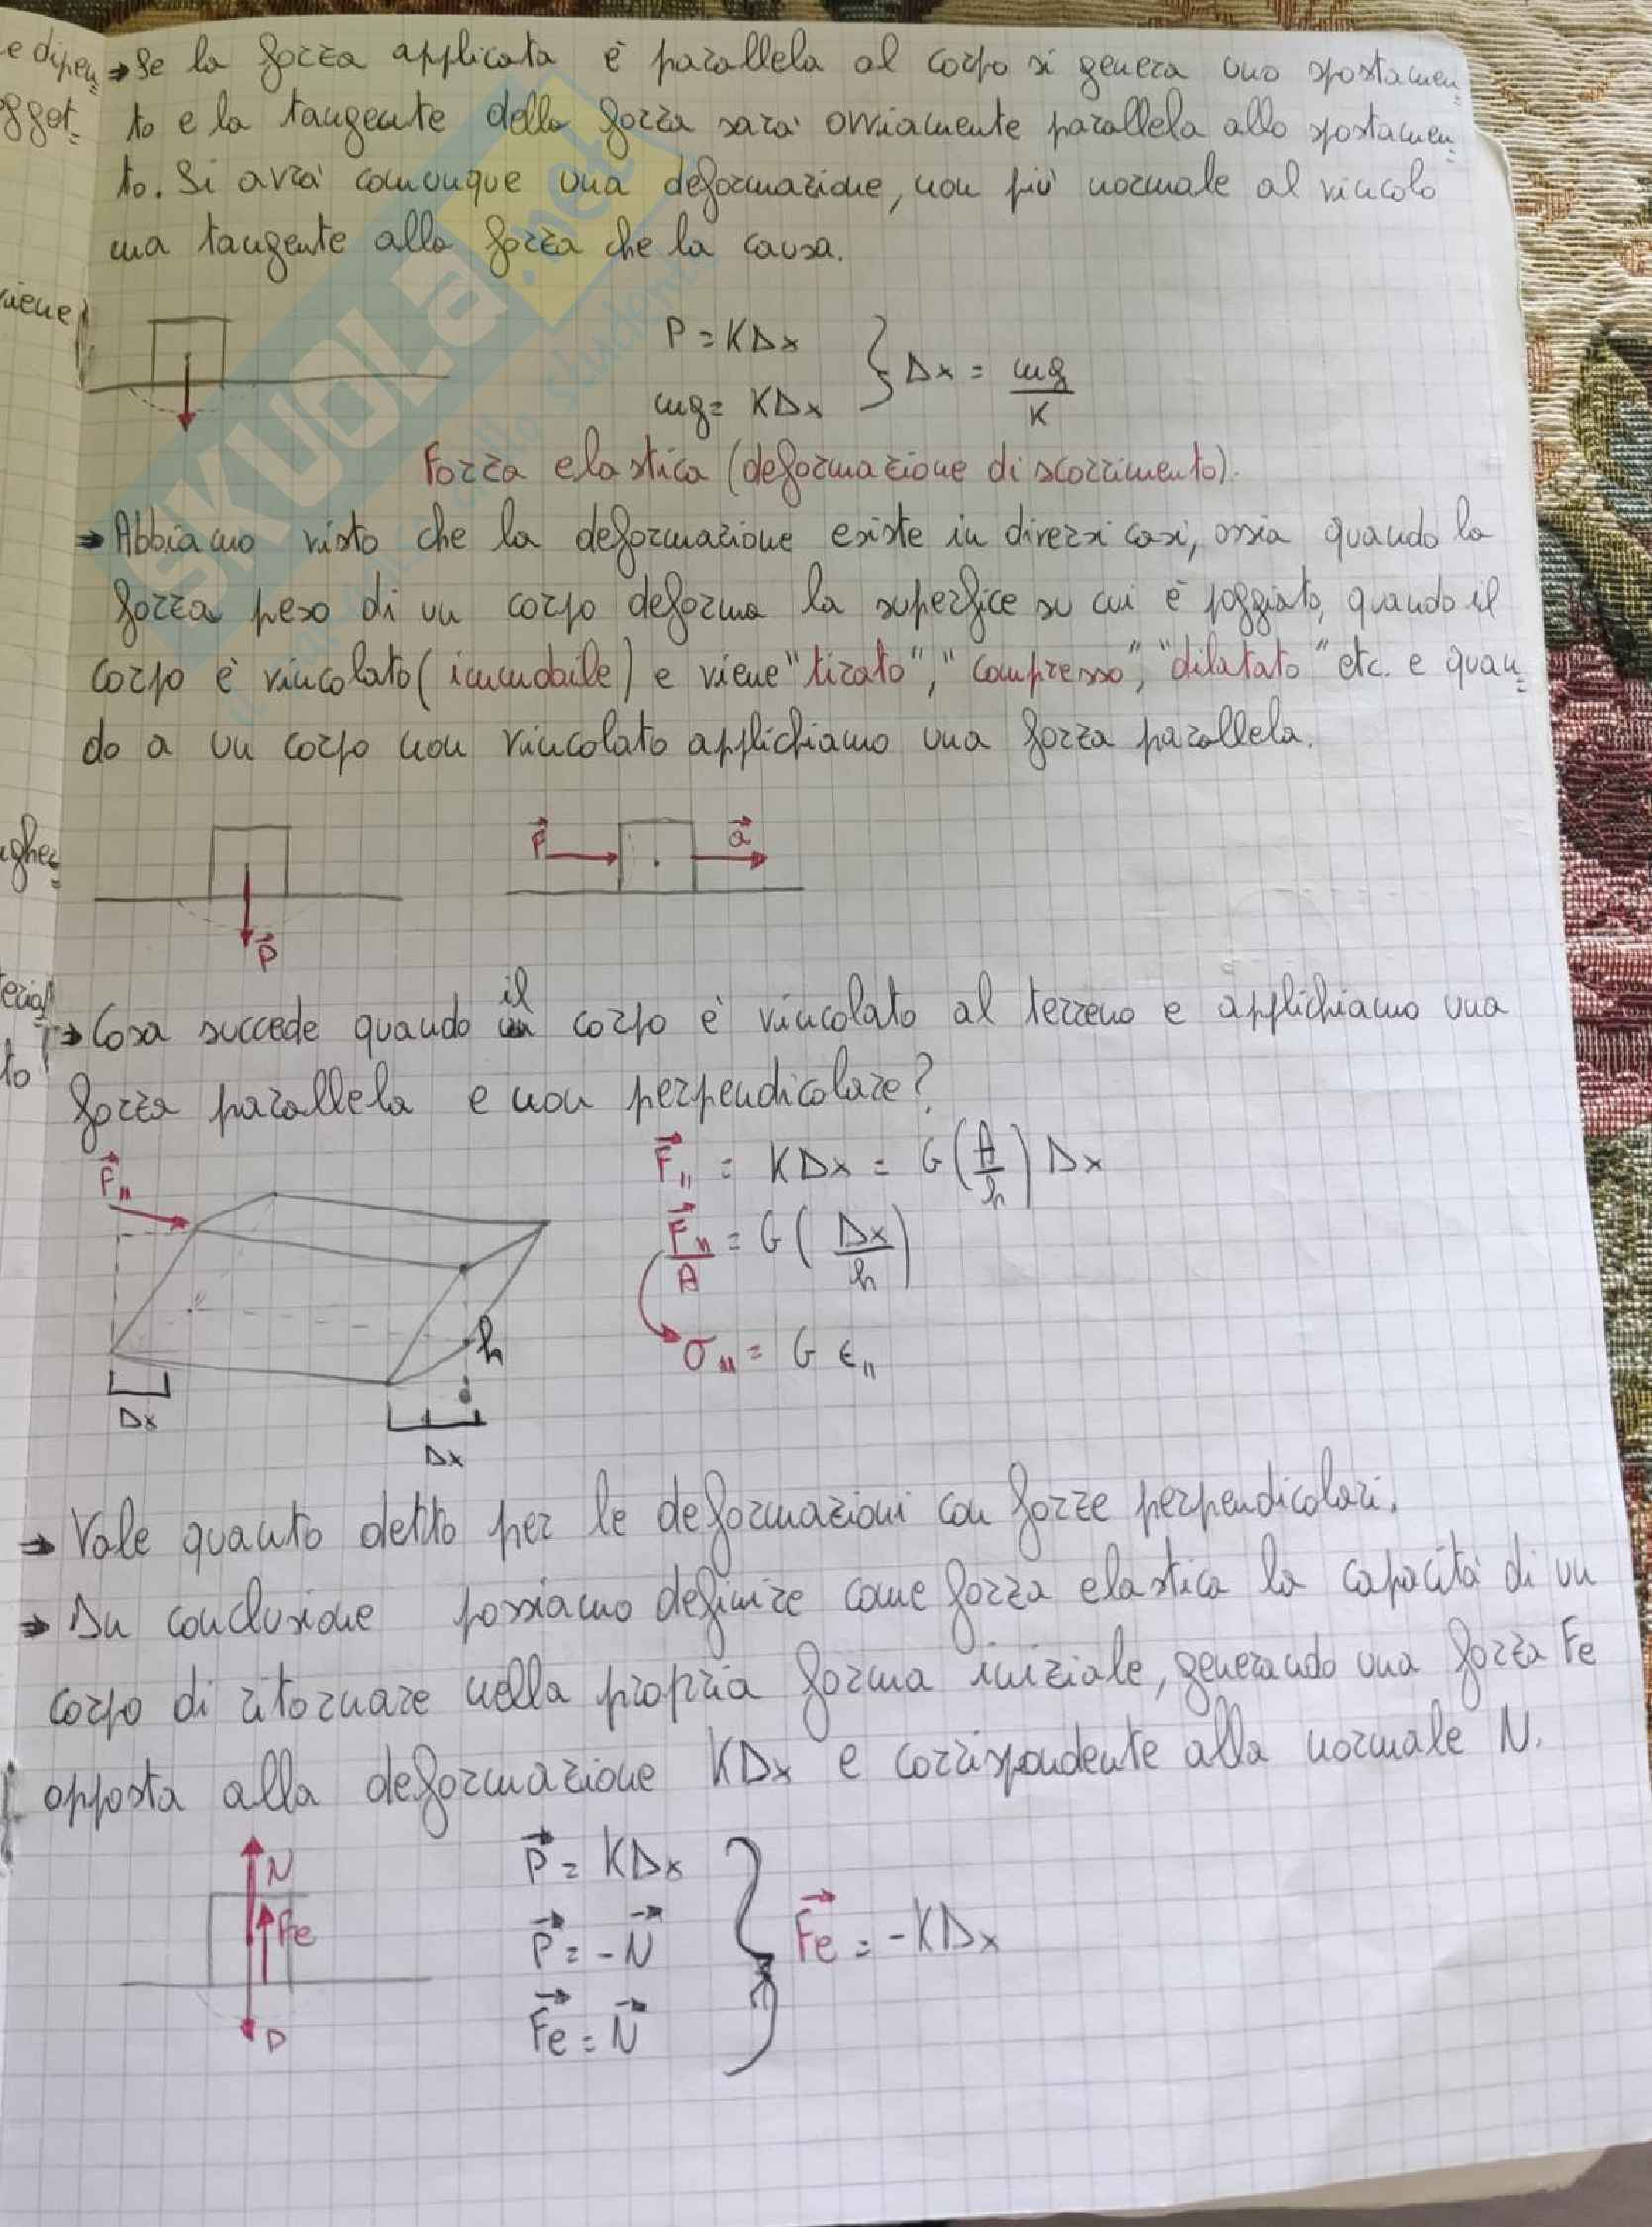 e dipen=
→ Se la forza applicata è parallela al corpo si genera uno spostamen=
ogget=
to e la tangente della forza sarà ovviamente parallela allo spostamen=
to. Si avrà comunque una deformazione, non più normale al vincolo
ma tangente alla forza che la causa.
viene
P = KΔx
mg = KΔx
} Δx = mg/K
Forza elastica (deformazione di scorrimento).
→ Abbiamo visto che la deformazione esiste in diversi casi, ossia quando la
forza peso di un corpo deforma la superfice su cui è poggiato, quando il
corpo è vincolato (immobile) e viene "tirato", "compresso", "dilatato" etc. e quan=
do a un corpo non vincolato applichiamo una forza parallela.
F⃗ a⃗
P⃗
→ Cosa succede quando il corpo è vincolato al terreno e applichiamo una
to
forza parallela e non perpendicolare?
F⃗∥
F⃗∥ = KΔx = G(A/h)Δx
F⃗∥/A = G(Δx/h)
σ∥ = G ε∥
h
Δx
Δx
→ Vale quanto detto per le deformazioni con forze perpendicolari.
→ In conclusione possiamo definire come forza elastica la capacità di un
corpo di ritornare nella propria forma iniziale, generando una forza Fe
opposta alla deformazione KΔx e corrispondente alla normale N.
N
Fe
P
P⃗ = KΔx
P⃗ = -N⃗
F⃗e = N⃗
} F⃗e = -KΔx
SKUOLA.net